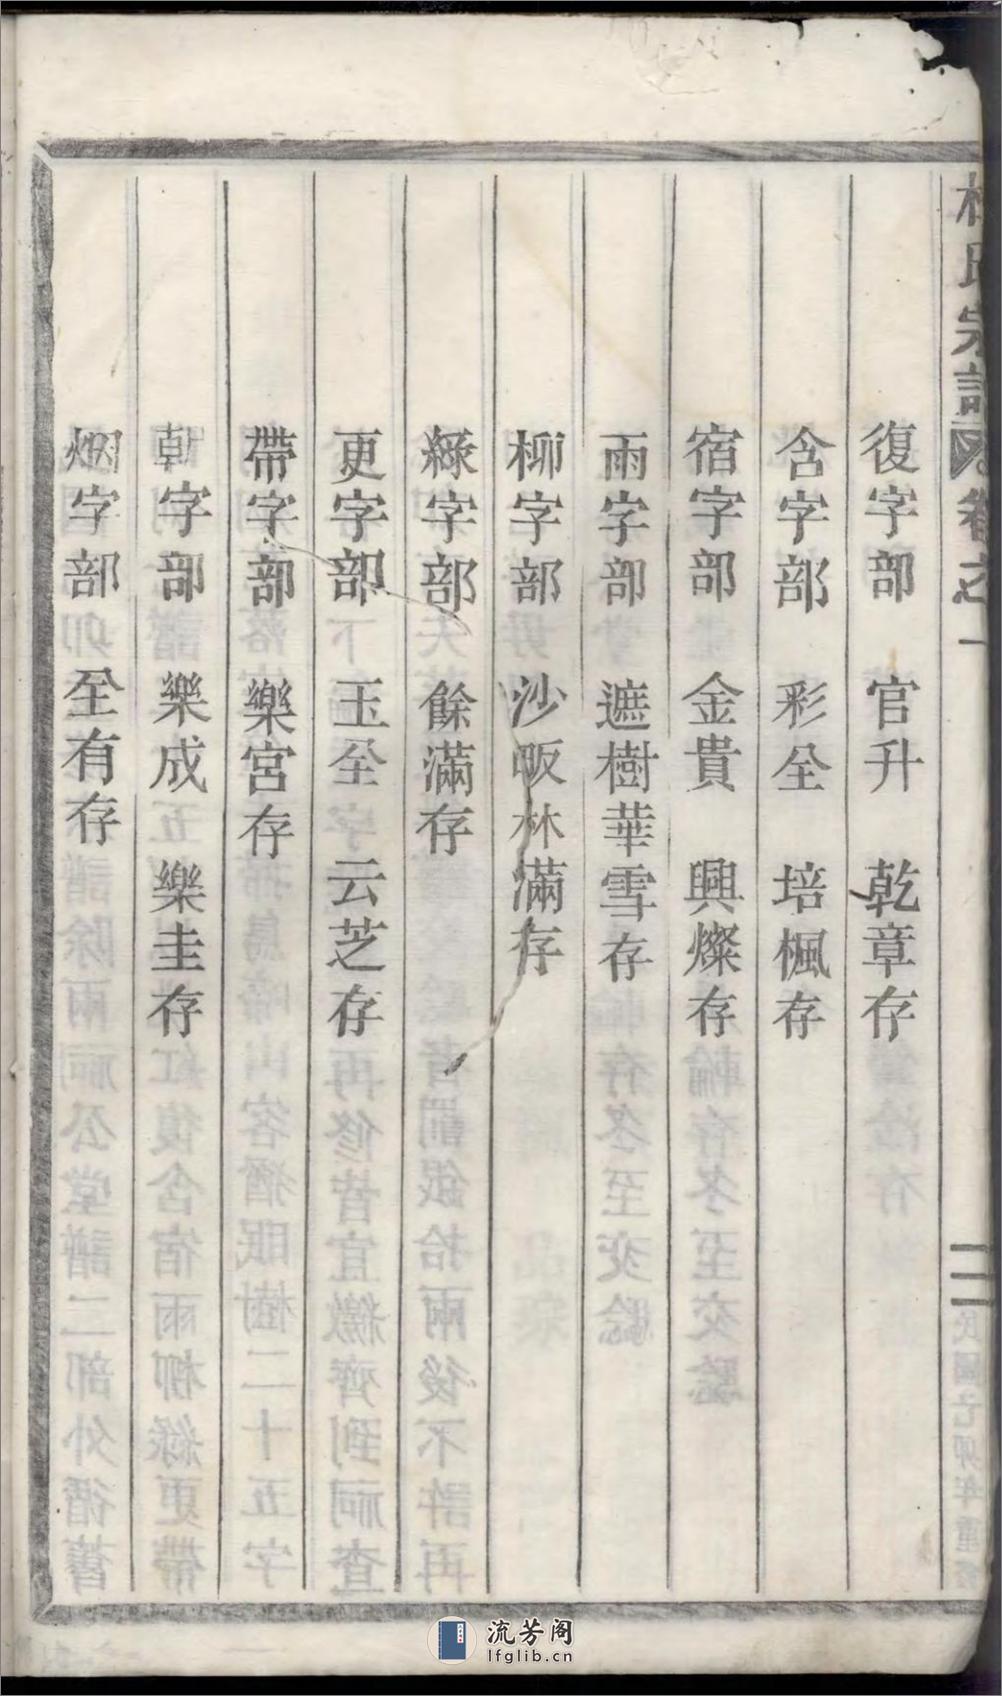 杜氏宗譜 卷之一 二
復字部 官升 乾章存
含字部 彩全 培楓存
宿字部 金貴 興燦存
雨字部 遮樹華雪存
柳字部 沙畈林滿存
綠字部 餘滿存
更字部 玉全 云芝存
帶字部 樂宮存
朝字部 樂成 樂圭存
烟字部 全有存
流芳阁
lfglib.cn